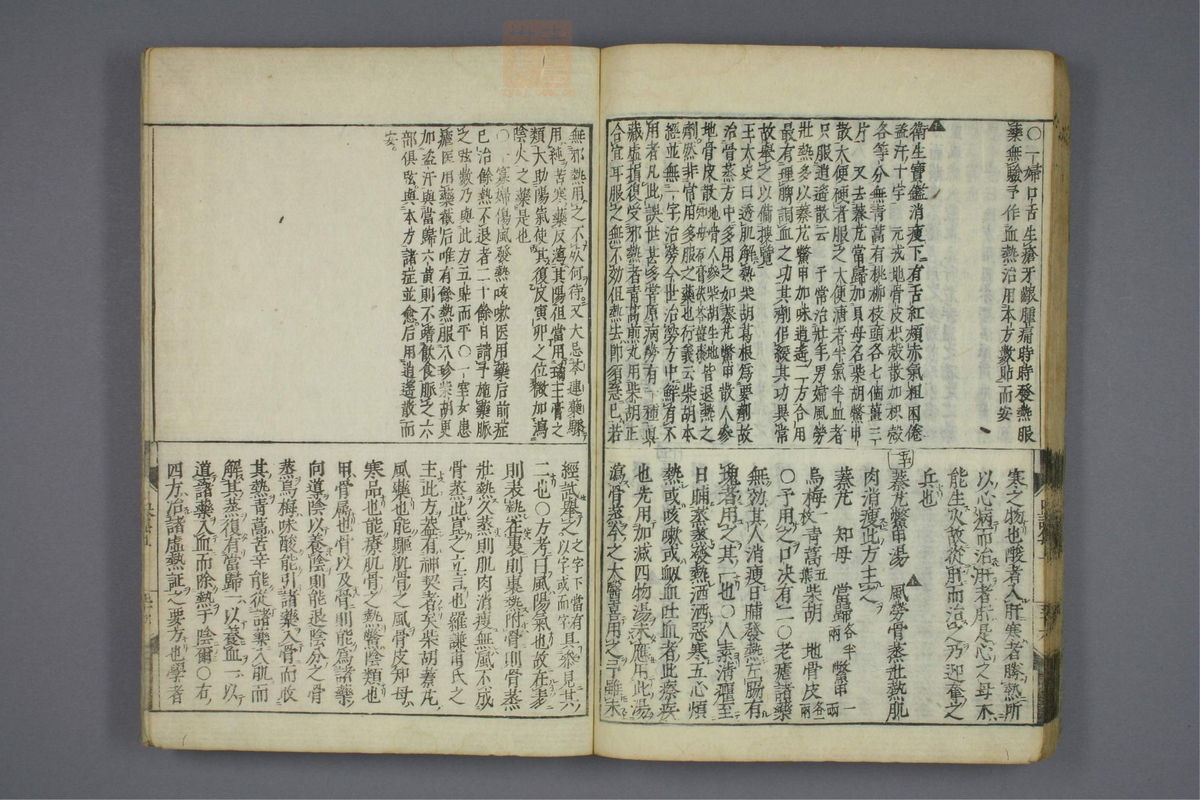 〇一婦口舌生瘡牙齦腫痛時時發熱服
藥無驗予作血熱治用本方數貼而安
衛生寶鑑消瘦下有舌紅頰赤氣粗困倦
盗汗十字 元戎地骨皮枳殼散加枳殼
各等分無青蒿有桃柳枝頭各七個薑三
片 又去秦艽當歸加貝母名柴胡鱉甲
散大便硬者服之大便溏者半氣半血者
只服逍遙散云 予常治壯年男婦風勞
壯熱多以秦艽鱉甲加味逍遙二方合用
最有理脾調血之功其劑但緩其功異常
故舉之以備搜覽
王太史曰透肌解熱柴胡葛根為要劑故
治骨蒸方中多用之如秦艽鱉甲散人參
地骨皮散 皆退熱之
劑然非常用多服之藥也衍義云柴胡本
經並無一字治勞今世治勞方中鮮有不
用者凡此誤世甚多嘗原病勞有一種真
藏虛損復受邪熱者青蒿煎丸用柴胡正
合宜耳服之無不効但熱去即須急已若
寒之物也酸者入肝寒者勝熱所
以心病而治肝者肝是心之母木
能生火故從肝而治之乃迎奪之
兵也
秦艽鱉甲湯 風勞骨蒸壯熱肌
肉消瘦此方主之
秦艽 知母 當歸各半兩 鱉甲一兩
烏梅一枚 青蒿五葉 柴胡 地骨皮各一兩
〇予用之口决有二〇老瘧諸藥
無効其人消瘦日晡發熱左腸有
塊者用之其一也〇人素清癯至
日晡蒸蒸發熱洒洒惡寒五心煩
熱或咳嗽或衂血吐血者此瘵疾
也先用加減四物湯未應用此湯
瀉骨蒸今之大醫喜用之予雖未
無邪熱用之不死何待又大忌苓連藥驟
用純苦寒藥反瀉其陽但當用瓊玉膏之
類大助陽氣使其復皮寅卯之位微加瀉
陰火之藥是也
〇一寡婦傷風發熱咳嗽医用藥后前症
已治餘熱不退者二十餘日請予施藥脈
之弦數乃與此方五貼而平〇一室女患
瘧医用藥截后唯有餘熱服小柴胡更
加盗汗與當歸六黄則不嗜飲食脈之六
部俱弦與本方諸症並愈后用逍遙散而
安
經試舉之以字或而字之字下當有且參見其
二也〇方考曰風陽氣也故在表
則表熱在裏則裏熱附骨則骨蒸
壯熱久蒸則肌肉消瘦無風不成
骨蒸此昆之立言也羅謙甫氏之
主此方蓋有神契者矣柴胡秦艽
風藥也能驅肌骨之風骨皮知母
寒品也能療肌骨之熱鱉陰類也
甲骨属也骨以及骨則能為諸藥
向導陰以養陰則能退陰分之骨
蒸烏梅味酸能引諸藥入骨而收
其熱青蒿苦辛能從諸藥入肌而
解其蒸復有當歸一以養血一以
道諸藥入血而除熱于陰爾〇右
四方治諸虛熱証之要方也學者